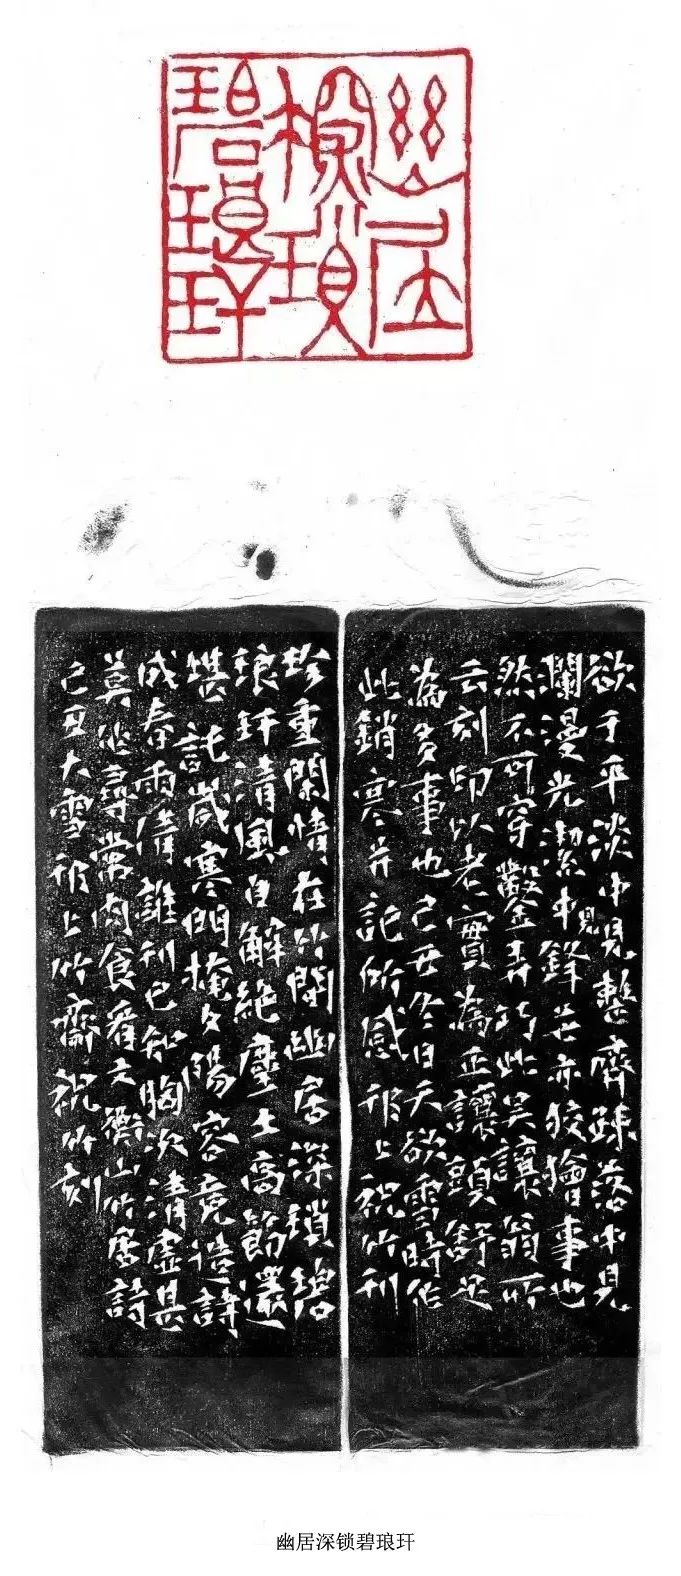 幽居
深瑣
碧琅玕
欲于平淡中見整齊疎落中見
爛漫光潔中見鋒芒亦狡獪事也
然不可穿鑿弄巧此吳讓翁所
云刻印以老實為正讓頭舒足
為多事也己丑冬日天欲雪時作
此銷寒并記所感邗上祝竹刊
珍重閒情在竹閒幽居深瑣碧
琅玕清風自解絕塵土高節還
堪託歲寒門掩夕陽容竟造詩
成春雨倩誰刊已知胸次清虛甚
莫從尋常肉食看文衡山竹居詩
己丑大雪邗上竹齋祝竹刻
幽居深锁碧琅玕